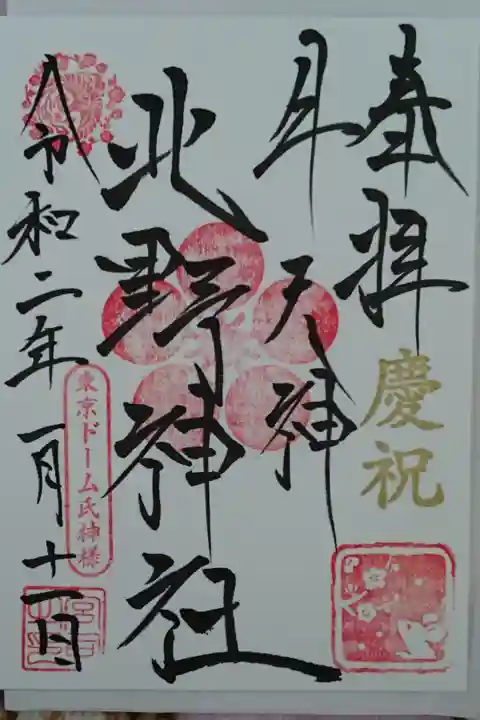 奉拝
慶祝
牛天神
北野神社
令和二年一月十一日
東京ドーム氏神様